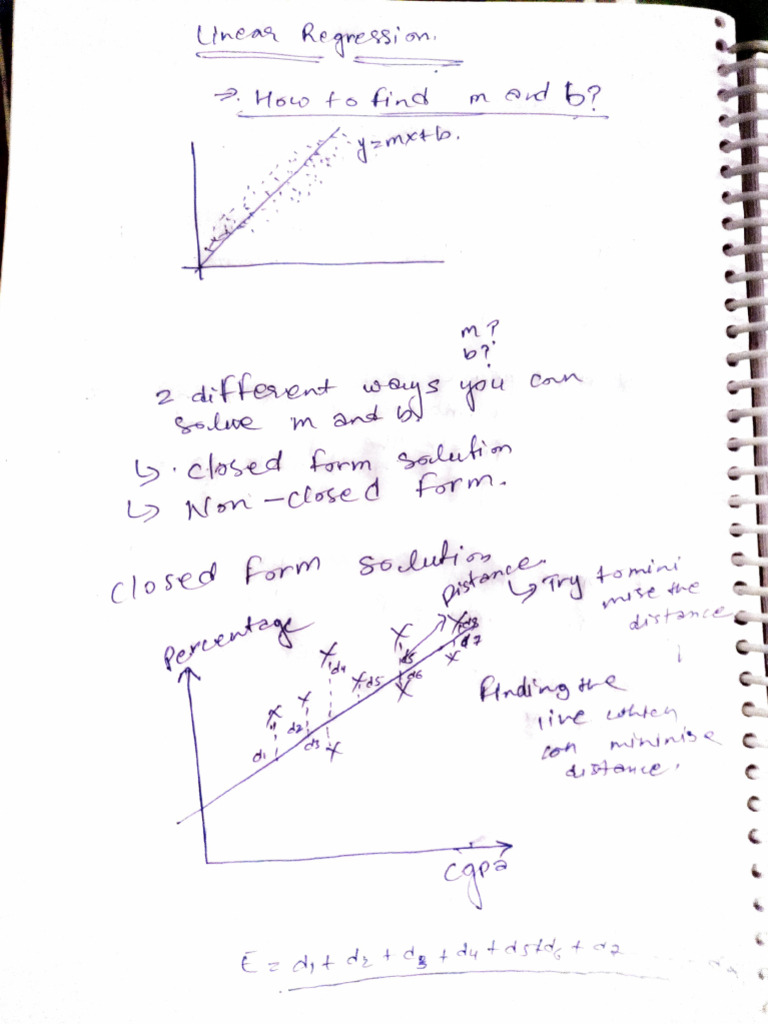 Linear Regression.
⇒ How to find m and b?
y=mx+b.
m?
b?
2 different ways you can
solve m and b
↳ . closed form solution
↳ Non-closed form.
closed form solution
Distance.
↳ Try to mini
mise the
distance
Percentage
d1
d2
d3
d4
d5
d5
d6
d8
d7
Finding the
line which
can minimise
distance.
cgpa
E = d1 + d2 + d3 + d4 + d5 + d6 + d7